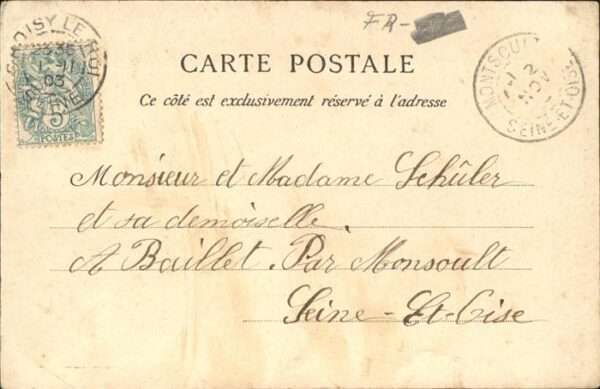 FR-
CHOISY LE ROI
1-11
03
SEINE
5
POSTES
CARTE POSTALE
Ce côté est exclusivement réservé à l'adresse
MONTSOULT
2
NOV
SEINE-ET-OISE
Monsieur et Madame Schüler
et sa demoiselle.
A Baillet. Par Monsoult
Seine-Et-Oise